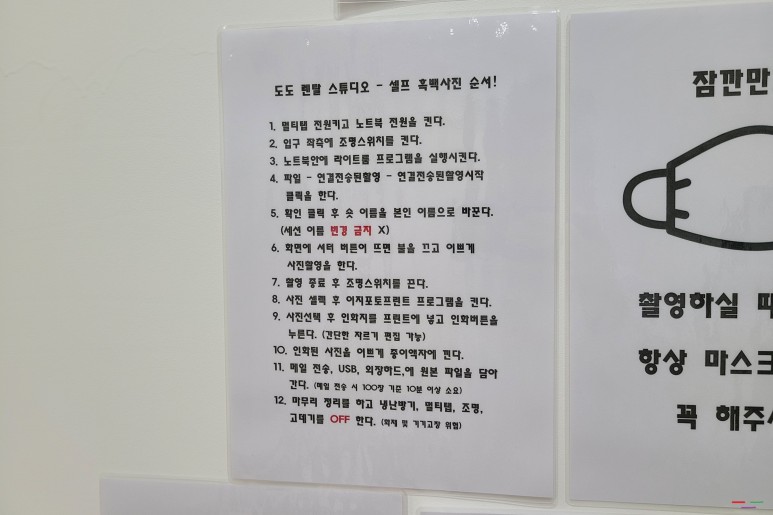 도도 렌탈 스튜디오 - 셀프 흑백사진 순서!
1. 멀티탭 전원키고 노트북 전원을 킨다.
2. 입구 좌측에 조명스위치를 킨다.
3. 노트북안에 라이트룸 프로그램을 실행시킨다.
4. 파일 - 연결전송된촬영 - 연결전송된촬영시작
클릭을 한다.
5. 확인 클릭 후 숏 이름을 본인 이름으로 바꾼다.
(세션 이름 변경 금지 X)
6. 화면에 셔터 버튼이 뜨면 불을 끄고 이쁘게
사진촬영을 한다.
7. 촬영 종료 후 조명스위치를 끈다.
8. 사진 셀렉 후 이지포토프린트 프로그램을 킨다.
9. 사진선택 후 인화지를 프린트에 넣고 인화버튼을
누른다. (간단한 자르기 편집 가능)
10. 인화된 사진을 이쁘게 종이액자에 낀다.
11. 메일 전송, USB, 외장하드,에 원본 파일을 담아
간다. (메일 전송 시 100장 기준 10분 이상 소요)
12. 마무리 정리를 하고 냉난방기, 멀티탭, 조명,
고데기를 OFF 한다. (화재 및 기기고장 위험)
잠깐만
촬영하실
항상 마스크
꼭 해주